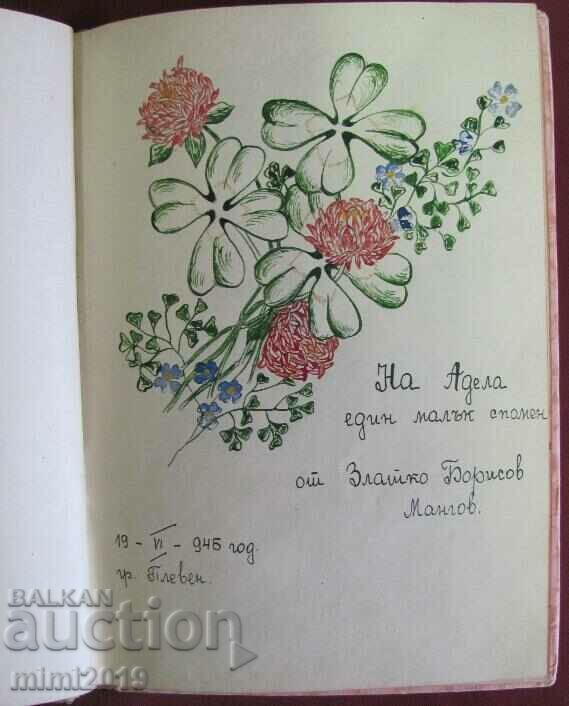 На Адела
един малък спомен
от Златко Борисов
Мангов.
19 - VI - 945 год.
гр. Плевен.
BALKAN
auction
mimi2019